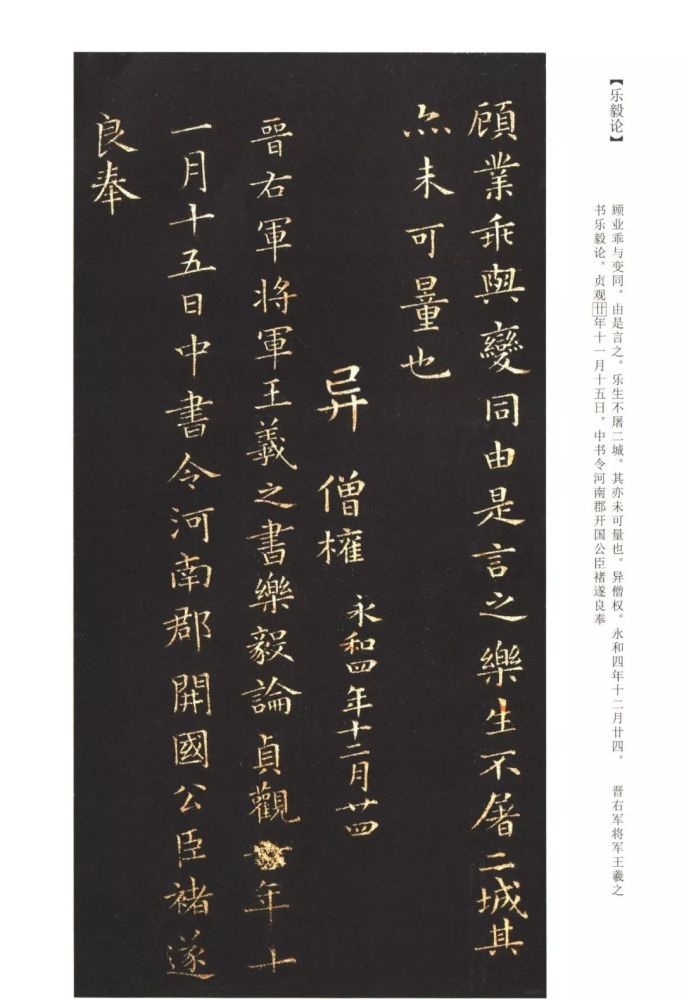 【乐毅论】
顾业乖与变同。由是言之。乐生不屠二城。其亦未可量也。异僧权。永和四年十二月廿四。 晋右军将军王羲之
书乐毅论。贞观廿年十一月十五日。中书令河南郡开国公臣褚遂良奉
顧業乖與變同由是言之樂生不屠二城其
亦未可量也
异 僧權 永和四年十二月廿四
晉右軍將軍王羲之書樂毅論貞觀 年十
一月十五日中書令河南郡開國公臣褚遂
良奉